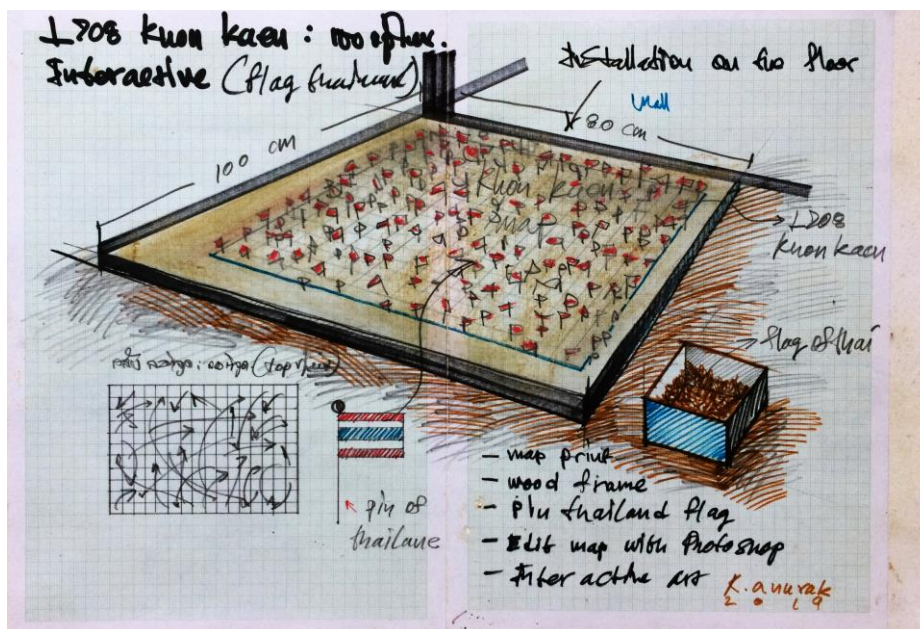 Khon kaen :
Interactive (flag
Installation on the floor
Wall
100 cm
80 cm
Khon kaen
map
Khon kaen
flag of thai
pin of
thailand
- map print
- wood frame
- Pin thailand flag
- Edit map with Photoshop
- Inter active art
K. anurak
2019